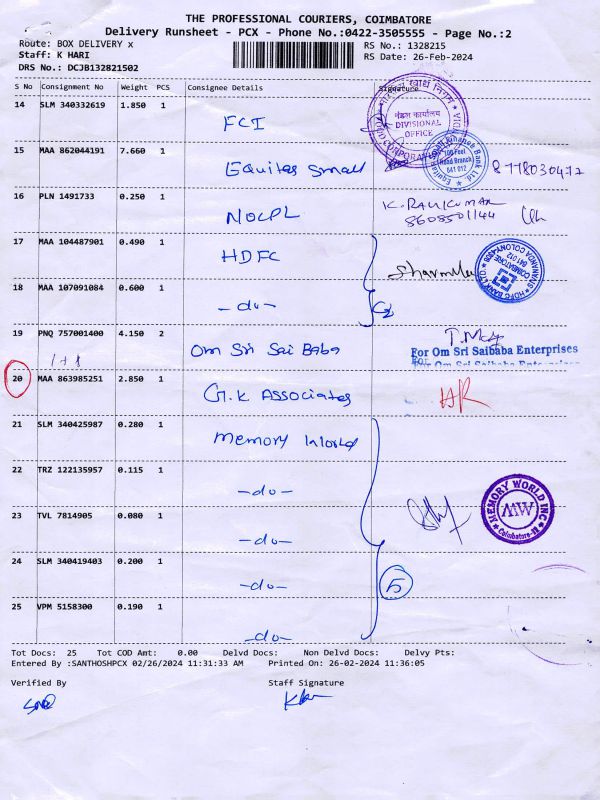 THE PROFESSIONAL COURIERS, COIMBATORE
Delivery Runsheet - PCX - Phone No.:0422-3505555 - Page No.:2
Route: BOX DELIVERY x RS No.: 1328215
Staff: K HARI RS Date: 26-Feb-2024
DRS No.: DCJB132821502
S No Consignment No Weight PCS Consignee Details Signature
14 SLM 340332619 1.850 1 FCI
DIVISIONAL
OFFICE
15 MAA 862044191 7.660 1 Equitas Small
641 012
16 PLN 1491733 0.250 1 NOCPL K. RAVIKUMAR
8608501144
17 MAA 104487901 0.490 1 HDFC
18 MAA 107091084 0.600 1 -do- 2
19 PNQ 757001400 4.150 2 Om Sri Sai Baba
1+1
For Om Sri Saibaba Enterprises
20 MAA 863985251 2.850 1 G.K Associates
21 SLM 340425987 0.280 1 Memory World
22 TRZ 122135957 0.115 1 -do-
MEMORY WORLD INC
MW
Coimbatore
23 TVL 7814905 0.080 1 -do-
24 SLM 340419403 0.200 1 -do- 5
25 VPM 5158300 0.190 1 -do-
Tot Docs: 25 Tot COD Amt: 0.00 Delvd Docs: Non Delvd Docs: Delvy Pts:
Entered By :SANTHOSHPCX 02/26/2024 11:31:33 AM Printed On: 26-02-2024 11:36:05
Verified By Staff Signature